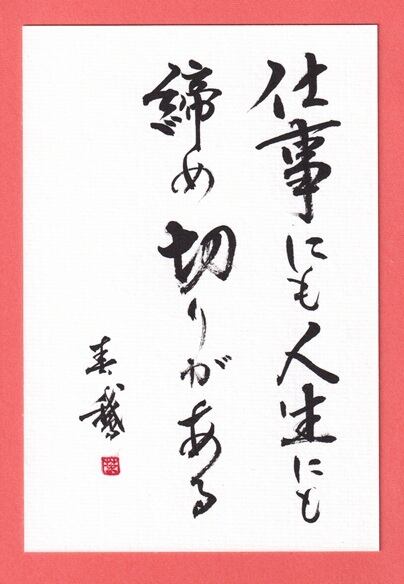 仕事にも人生にも
締め切りがある
春鵞